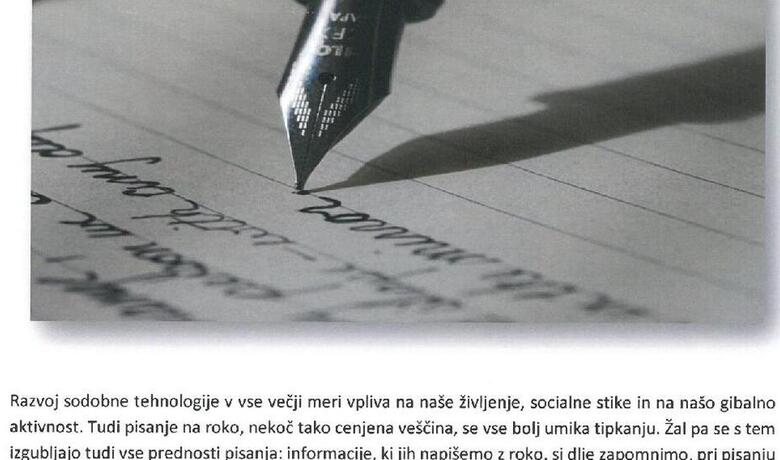 Razvoj sodobne tehnologije v vse večji meri vpliva na naše življenje, socialne stike in na našo gibalno
aktivnost. Tudi pisanje na roko, nekoč tako cenjena veščina, se vse bolj umika tipkanju. Žal pa se s tem
izgubljajo tudi vse prednosti pisanja: informacije, ki jih napišemo z roko, si dlje zapomnimo, pri pisanju